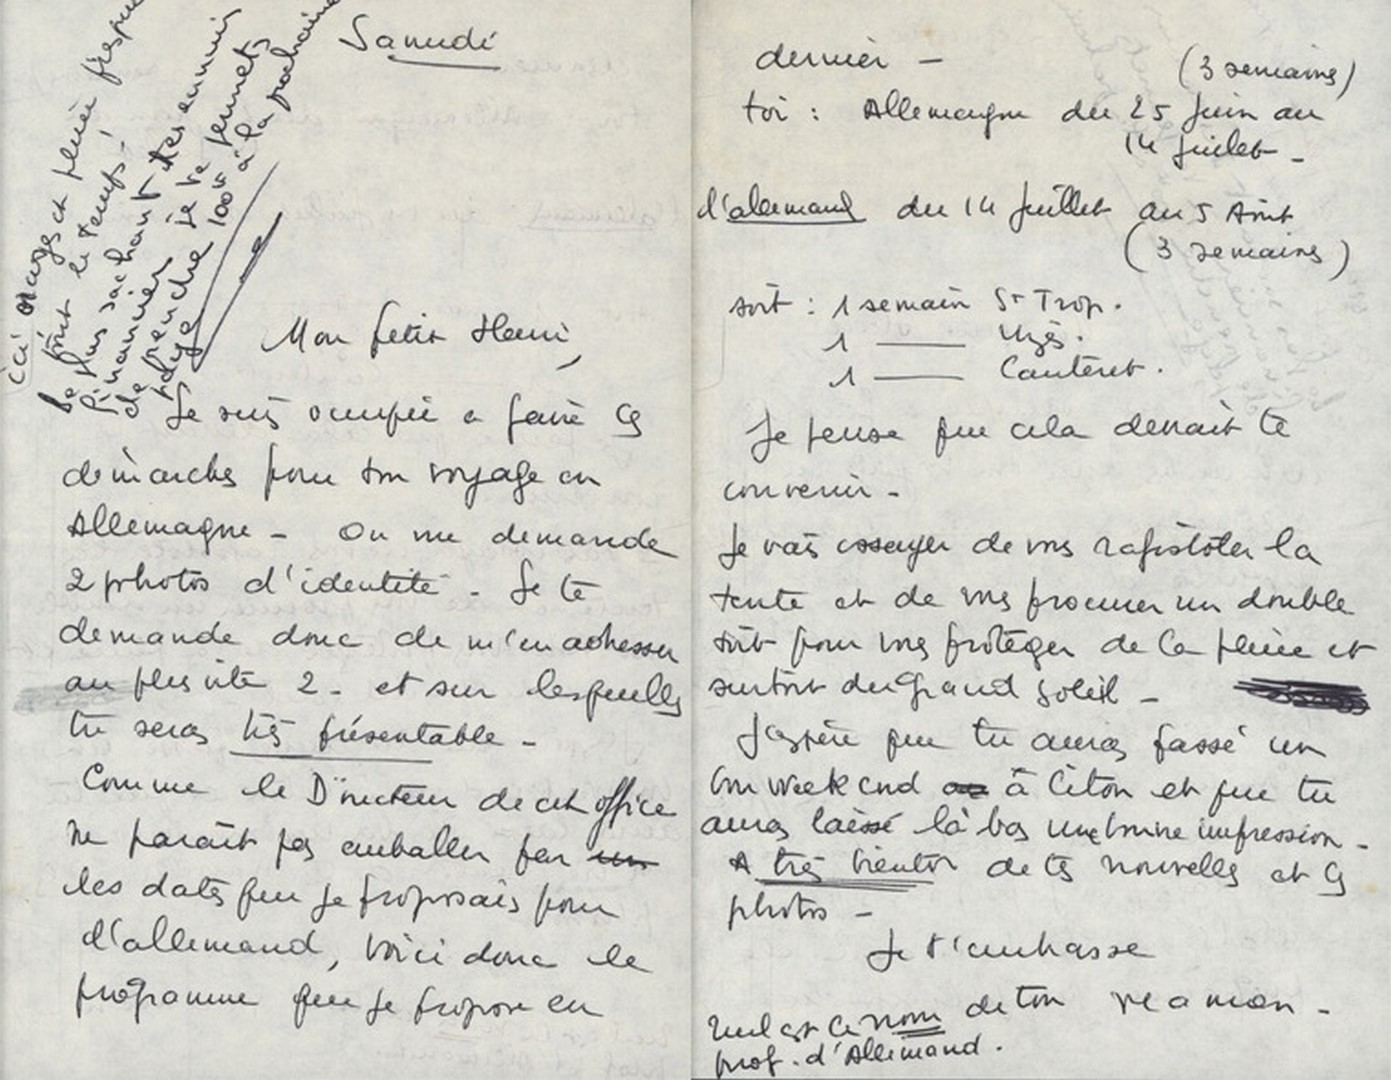 Samedi
ici orages et pluie presque
tout le temps !
De plus sachant tes ennuis
financiers je te permets
de prendre 100F à la prochaine
paye
Mon petit Henri,
Je suis occupée a faire ces
démarches pour ton voyage en
Allemagne - On me demande
2 photos d'identité - Je te
demande donc de m'en adresser
au plus vite 2 - et sur lesquelles
tu seras très présentable -
Comme le Directeur de cet office
ne paraît pas emballer par
les dates que je proposais pour
d'allemand, voici donc le
programme que je propose en
dernier -
(3 semaines)
toi : Allemagne du 25 Juin au
14 Juillet -
d'allemand du 14 Juillet au 5 Août
(3 semaines)
soit : 1 semain St Trop.
1 —— Uzès.
1 —— Cauteret.
Je pense que cela devrait te
convenir -
Je vais essayer de vous rafistoler la
tente et de vous procurer un double
toit pour vous protéger de la pluie et
surtout du grand soleil -
J'espère que tu auras passé un
bon week end à Citon et que tu
auras laissé là bas une bonne impression -
A très bientôt de tes nouvelles et tes
photos -
Je t'embrasse
de ton maman -
Quel est le nom
prof. d'Allemand.